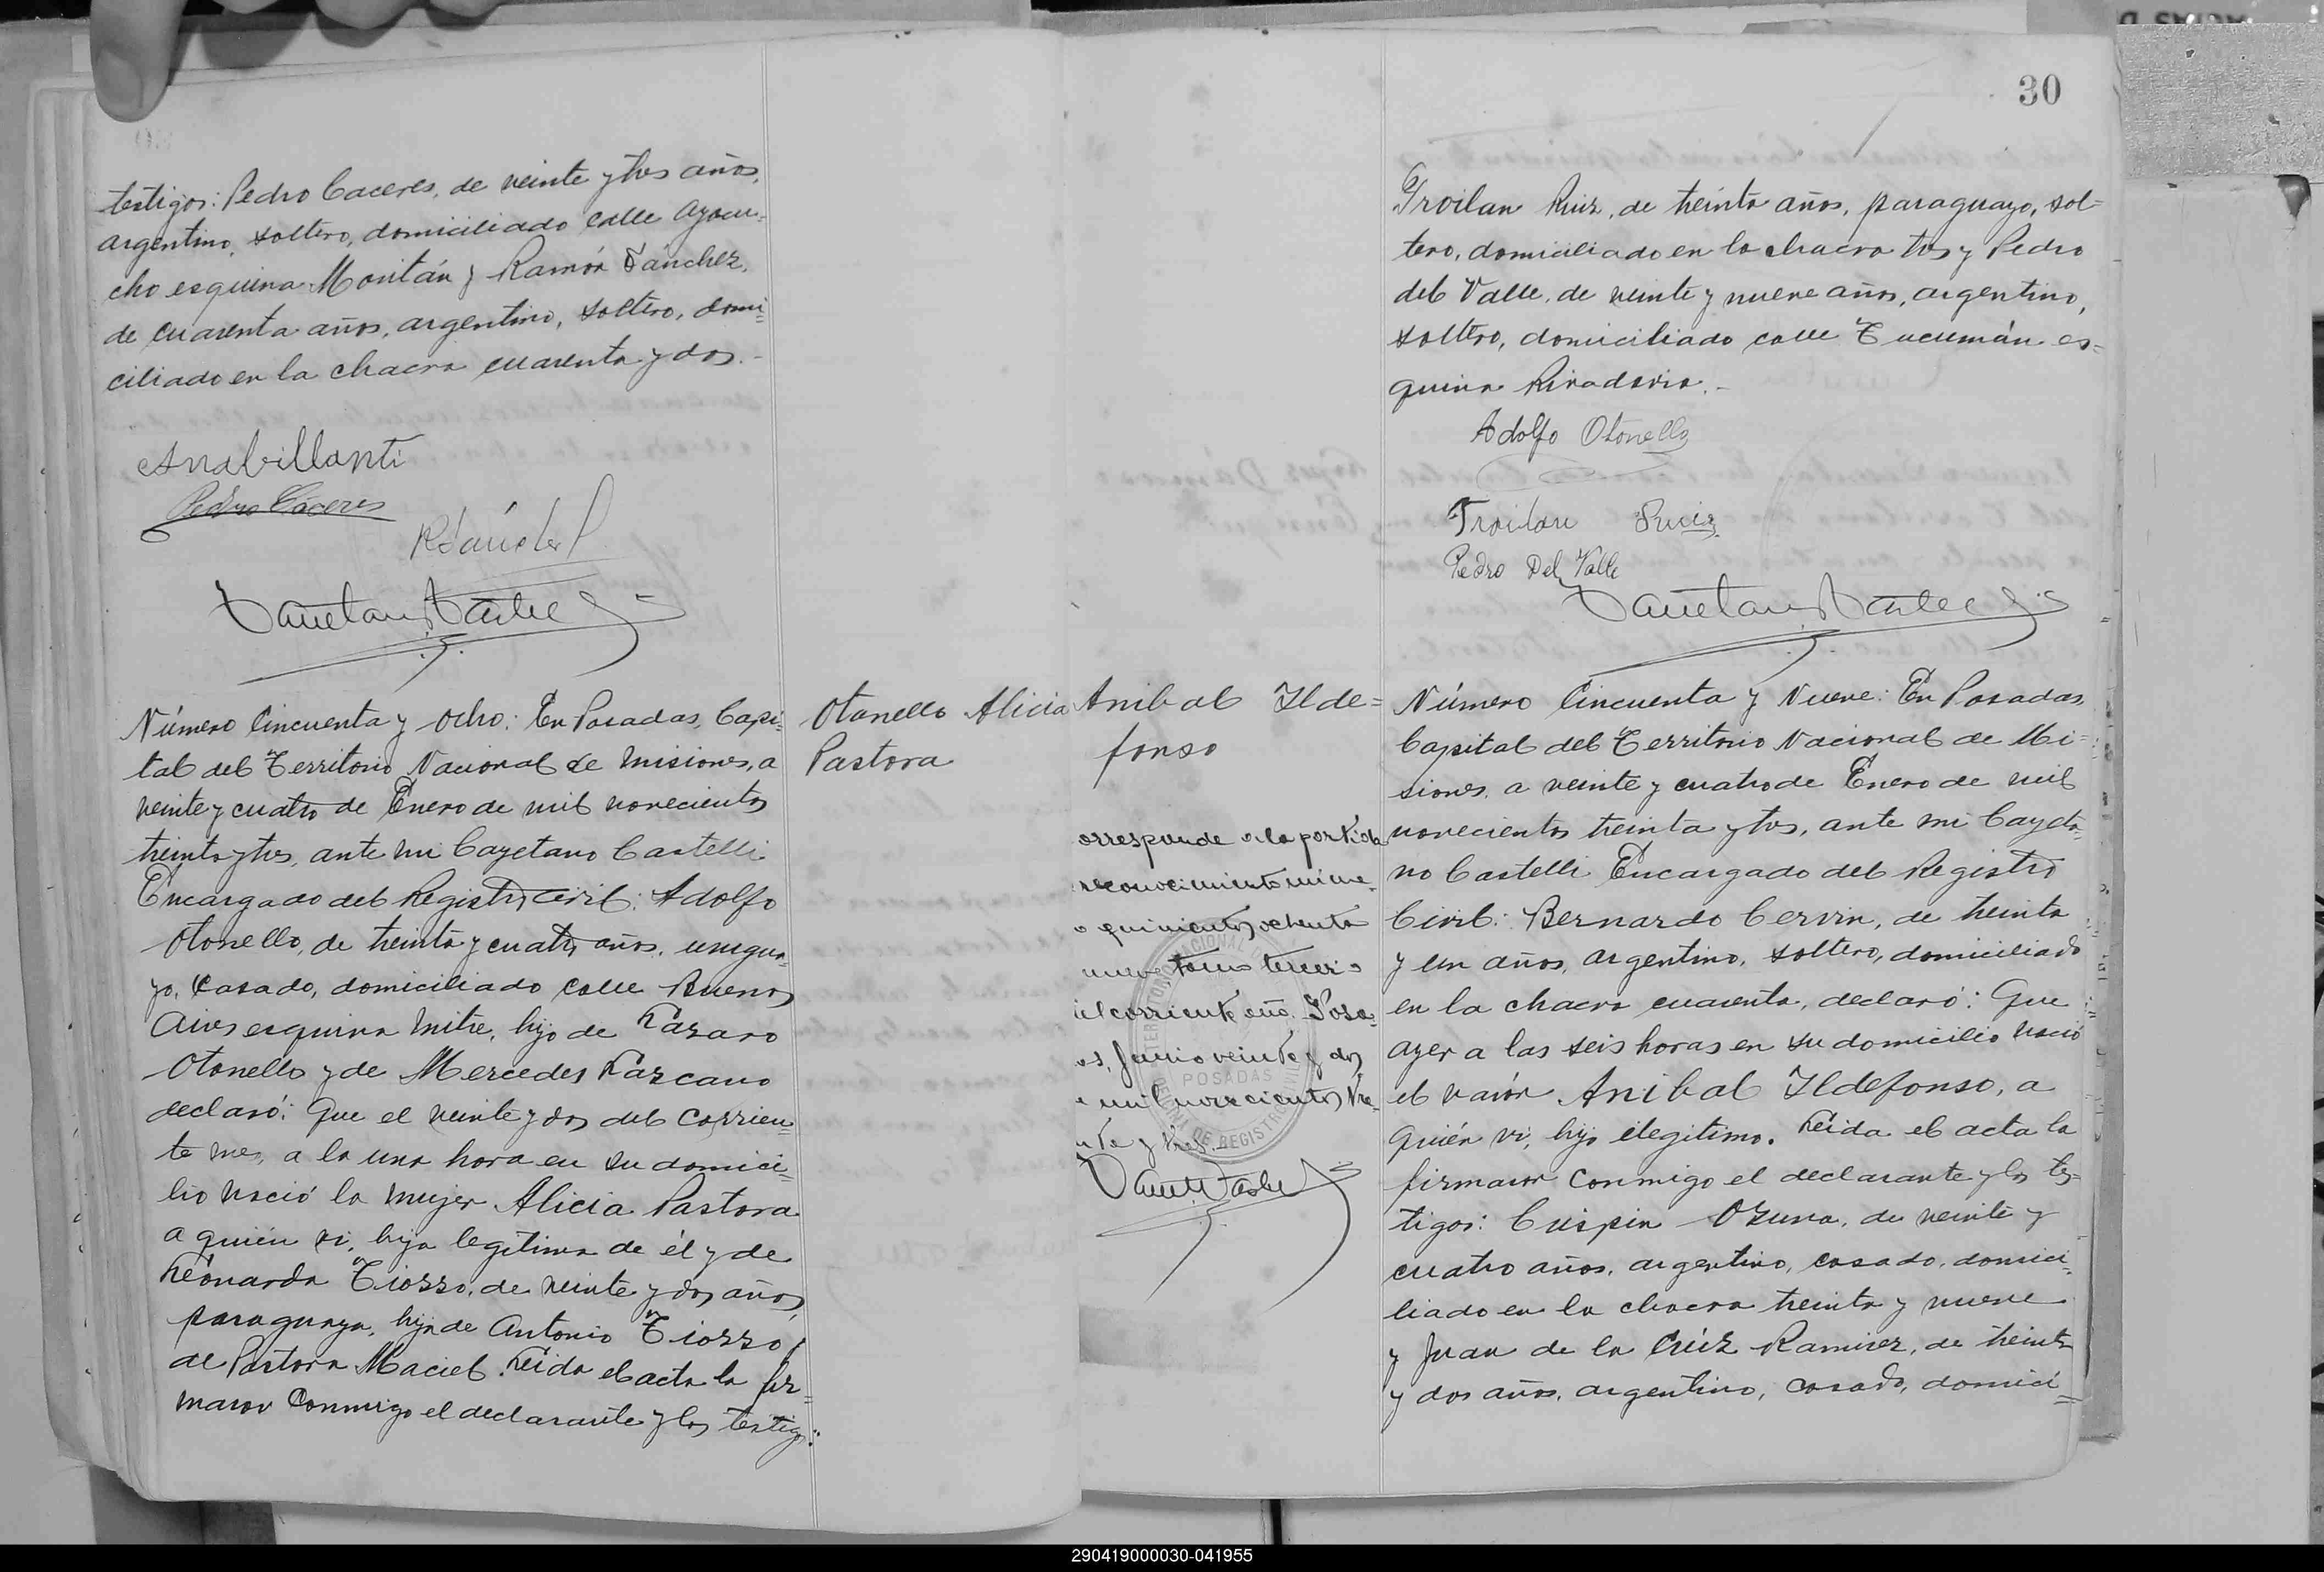 testigos: Pedro Caceres, de veinte y tres años,
argentino, soltero, domiciliado calle Ayacu=
cho esquina Moritán y Ramón Sánchez,
de cuarenta años, argentino, soltero, domi=
ciliado en la chacra cuarenta y dos.-
Pedro Cáceres
Número Cincuenta y Ocho: En Posadas, Capi=
tal del Territorio Nacional de Misiones, a
veinte y cuatro de Enero de mil novecientos
treinta y tres, ante mi Cayetano Castelli
Encargado del Registro Civil: Adolfo
Otonello, de treinta y cuatro años, urugua=
yo, casado, domiciliado calle Buenos
Aires esquina Mitre, hijo de Lázaro
Otonello y de Mercedes Lazcano
declaró: Que el veinte y dos del corrien=
te mes, a la una hora en su domici=
lio nació la mujer Alicia Pastora
a quién vi, hija legítima de él y de
Leonarda Tiosso, de veinte y dos años,
paraguaya, hija de Antonio Tiosso y
de Pastora Maciel. Leida el acta la fir=
maron conmigo el declarante y los testigos:
Otonello Alicia
Pastora
30
Troilan Ruiz, de treinta años, paraguayo, sol=
tero, domiciliado en la chacra tres y Pedro
del Valle, de veinte y nueve años, argentino,
soltero, domiciliado calle Tucumán es=
quina Rivadavia.-
Adolfo Otonello
Troilan Ruiz
Pedro Del Valle
Anibal Ilde=
fonso
orresponde a la partida
reconocimiento núme=
o quinientos ochenta
nueve tomo tercero
el corriente año. Posa=
as, Junio veinte y dos
e mil novecientos tre=
nta y tres.
POSADAS
Número Cincuenta y Nueve: En Posadas,
Capital del Territorio Nacional de Mi=
siones, a veinte y cuatro de Enero de mil
novecientos treinta y tres, ante mi Cayeta=
no Castelli Encargado del Registro
Civil: Bernardo Cervin, de treinta
y un años, argentino, soltero, domiciliado
en la chacra cuarenta, declaró: Que
ayer a las seis horas en su domicilio nació
el varón Anibal Ildefonso, a
quién vi, hijo ilegitimo. Leida el acta la
firmaron conmigo el declarante y los tes=
tigos: Crispin Ozuna, de veinte y
cuatro años, argentino, casado, domici=
liado en la chacra treinta y nueve
y Juan de la Cruz Ramirez, de treinta
y dos años, argentino, casado, domici=
290419000030-041955